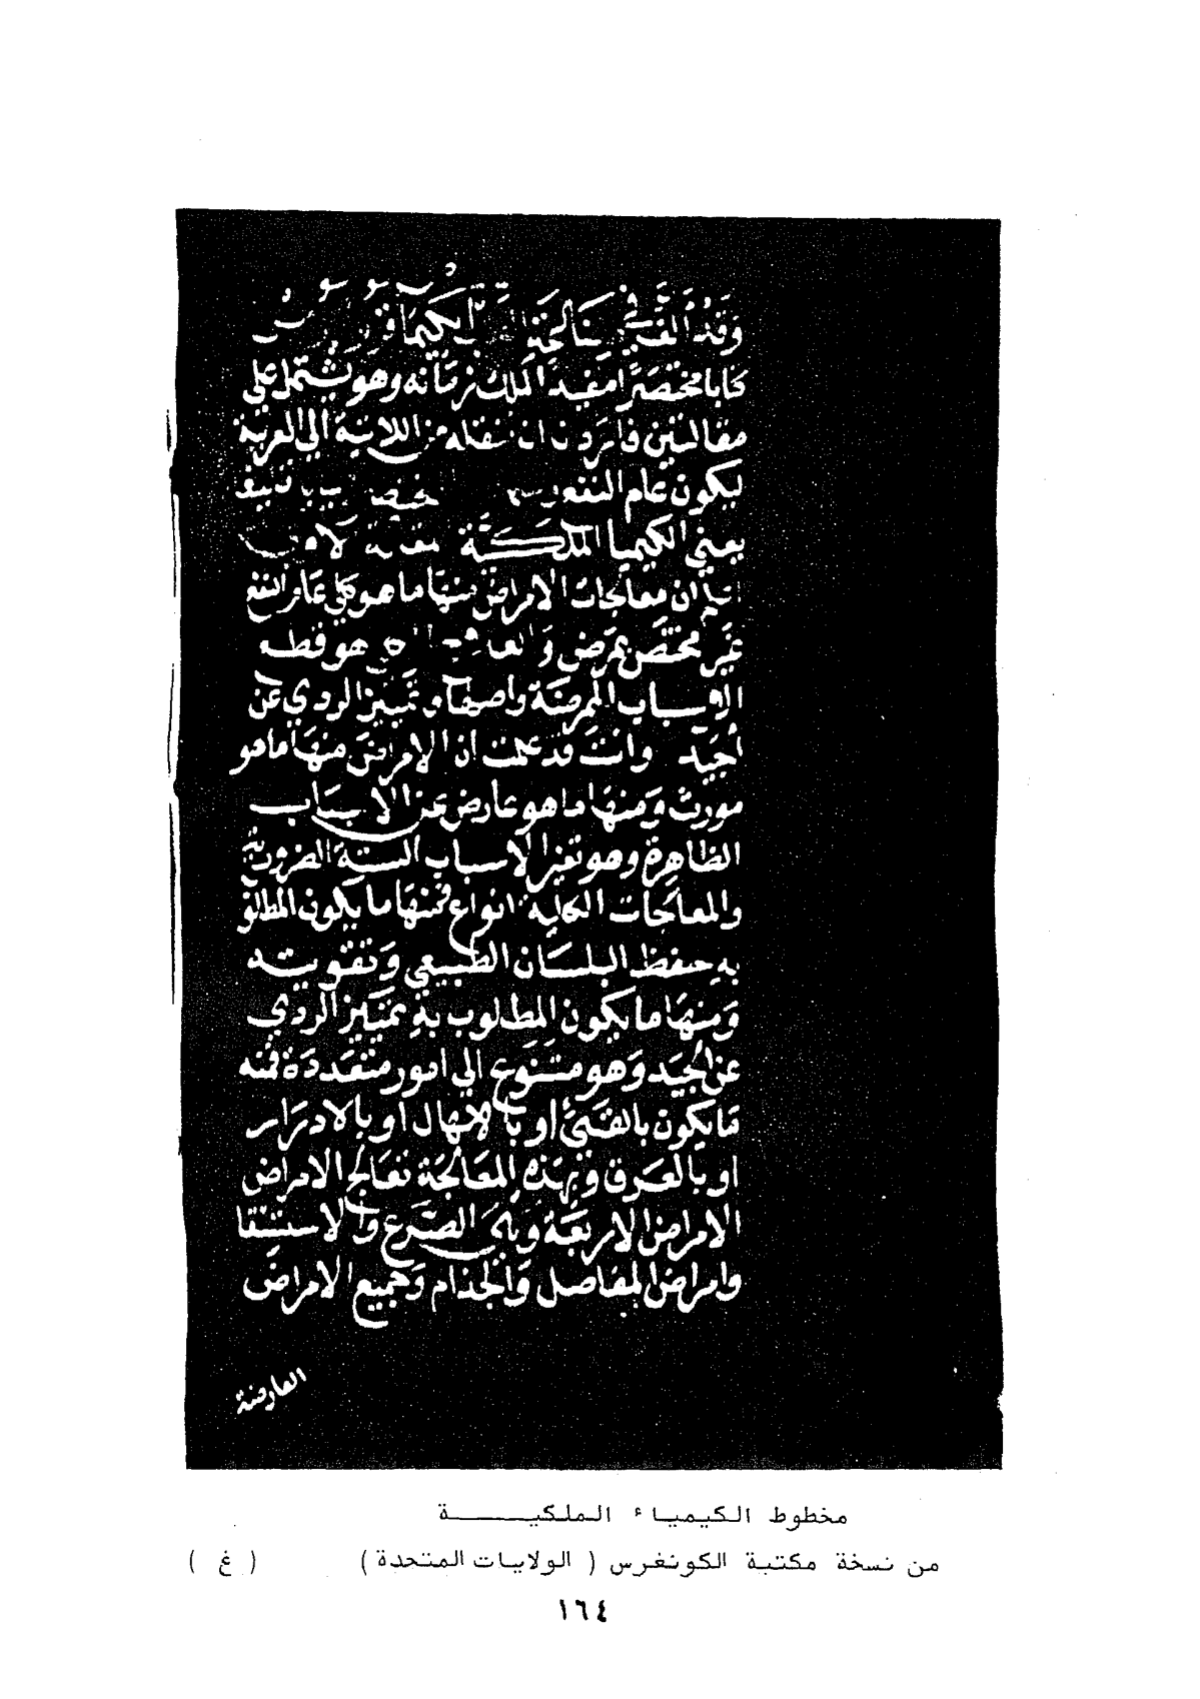 وَقَدْ الف في
كتابا مختصرا مفيدا لملك زمانه وهو يشتمل على
مقالتين فاردت ان ننقله من اللاتينية الي العربية
ليكون عام النفع
يعني الكيميا الملكية مقدمة
ان معالجات الامراض منها ما هو كلي عام النفع
غير مختص بمرض و هو قطع
الاسباب الممرضة واصلها وتمييز الردي عن
الجيد وانت قد علمت ان الامراض منها ما هو
مورث ومنها ما هو عارض عن الاسباب
الظاهرة وهو تغير الاسباب الستة الضرورية
والمعالجات الكلية انواع فمنها ما يكون المطلوب
به حفظ البلسان الطبيعي وتقويته
ومنها ما يكون المطلوب به تمييز الردي
عن الجيد وهو متنوع الي امور متعددة فمنه
ما يكون بالقيئ او بالاسهال او بالادرار
او بالعرق وبهذه المعالجة تعالج الامراض
الامراض الاربعة وهي الصرع والاستسقا
وامراض المفاصل والجذام وجميع الامراض
العارضة
مخطوط الكيمياء الملكيــــة
من نسخة مكتبة الكونغرس ( الولايات المتحدة ) ( غ )
١٦٤